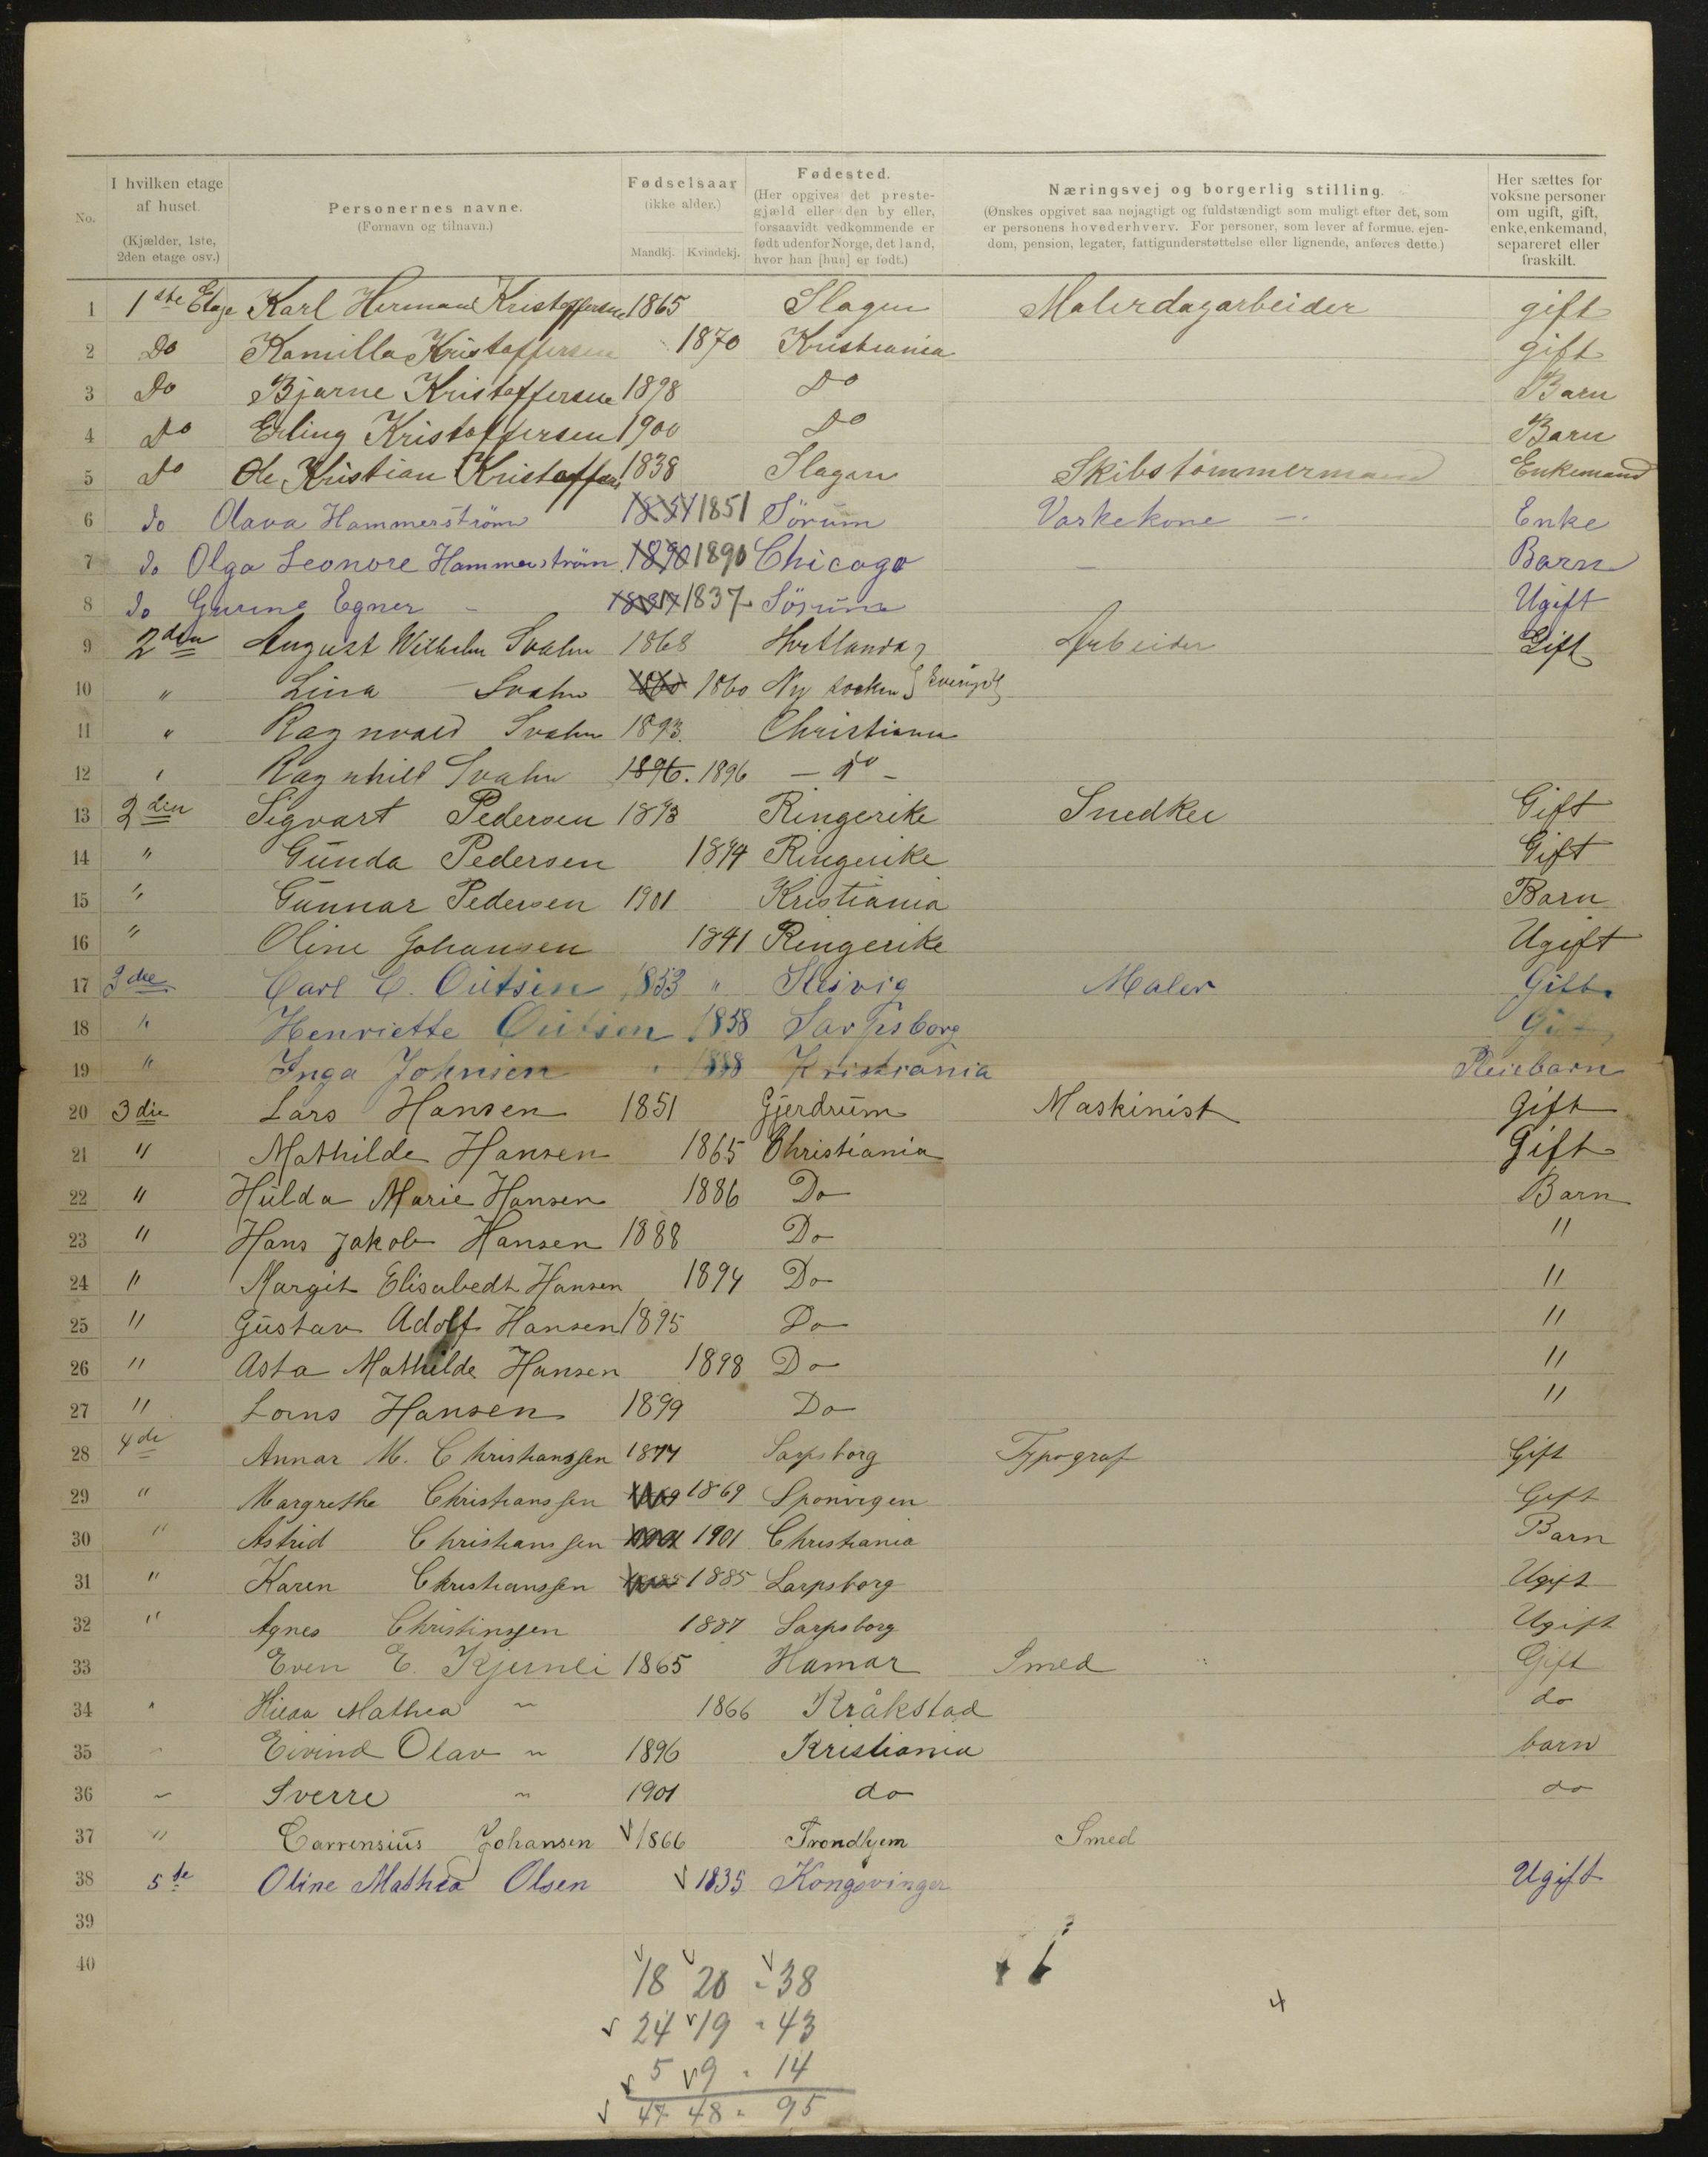 No.
I hvilken etage af huset. (Kjælder, 1ste, 2den etage osv.)
Personernes navne. (Fornavn og tilnavn.)
Fødselsaar (ikke alder.) Mandkj. Kvindekj.
Fødested. (Her opgives det prestegjæld eller den by eller, forsaavidt vedkommende er født udenfor Norge, det land, hvor han [hun] er født.)
Næringsvej og borgerlig stilling. (Ønskes opgivet saa nøjagtigt og fuldstændigt som muligt efter det, som er personens hovederhverv. For personer, som lever af formue, ejendom, pension, legater, fattigunderstøttelse eller lignende, anføres dette.)
Her sættes for voksne personer om ugift, gift, enke, enkemand, separeret eller fraskilt.
1 1ste Etage Karl Herman Kristoffersen 1865 Slagen Malerdagarbeider gift
2 Do Kamilla Kristoffersen 1870 Kristiania gift
3 Do Bjarne Kristoffersen 1898 Do Barn
4 Do Erling Kristoffersen 1900 Do Barn
5 Do Ole Kristian Kristoffers 1838 Slagen Skibstömmermand Enkemand
6 do Olava Hammerström 1854 1851 Sörum Vaskekone — Enke
7 do Olga Leonore Hammerström 1890 1890 Chicago — Barn
8 do Gurine Egner - 1837 1837 Sörum Ugift
9 2den August Wilhelm Svahn 1868 Arbeider Gift
10 " Lina — Svahn 1860 1860 Ny socken
11 " Ragnvald Svahn 1893 Christiania
12 " Ragnhild Svahn 1896. 1896 — do —
13 2den Sigvart Pedersen 1873 Ringerike Snedker Gift
14 " Gunda Pedersen 1874 Ringerike Gift
15 " Gunnar Pedersen 1901 Kristiania Barn
16 " Oline Johansen 1841 Ringerike Ugift
17 3die Carl C. Outsen 1853 " Slesvig Maler Gift
18 " Henriette Outsen 1858 Sarpsborg Gift
19 " Inga Johnsen " 1888 Kristiania Pleiebarn
20 3die Lars Hansen 1851 Gjerdrum Maskinist Gift
21 " Mathilde Hansen 1865 Christiania Gift
22 " Hulda Marie Hansen 1886 Do Barn
23 " Hans Jakob Hansen 1888 Do "
24 " Margit Elisabedt Hansen 1894 Do "
25 " Gustav Adolf Hansen 1895 Do "
26 " Asta Mathilde Hansen 1898 Do "
27 " Lorns Hansen 1899 Do "
28 4de Annar M. Christianssen 1877 Sarpsborg Typograf Gift
29 " Margrethe Christianssen 1869 1869 Sponvigen Gift
30 " Astrid Christianssen 1901 1901 Christiania Barn
31 " Karen Christianssen 1885 1885 Sarpsborg Ugift
32 " Agnes Christinssen 1887 Sarpsborg Ugift
33 Even E. Kjernli 1865 Hamar Smed Gift
34 " Hilda Mathea " 1866 Kråkstad do
35 " Eivind Olav " 1896 Kristiania barn
36 " Sverre " 1901 do do
37 " Carrensius Johansen 1866 Trondhjem Smed
38 5te Oline Mathea Olsen 1835 Kongsvinger Ugift
39
40
18 20 = 38
24 19 = 43
4
5 9 = 14
47 48 = 95